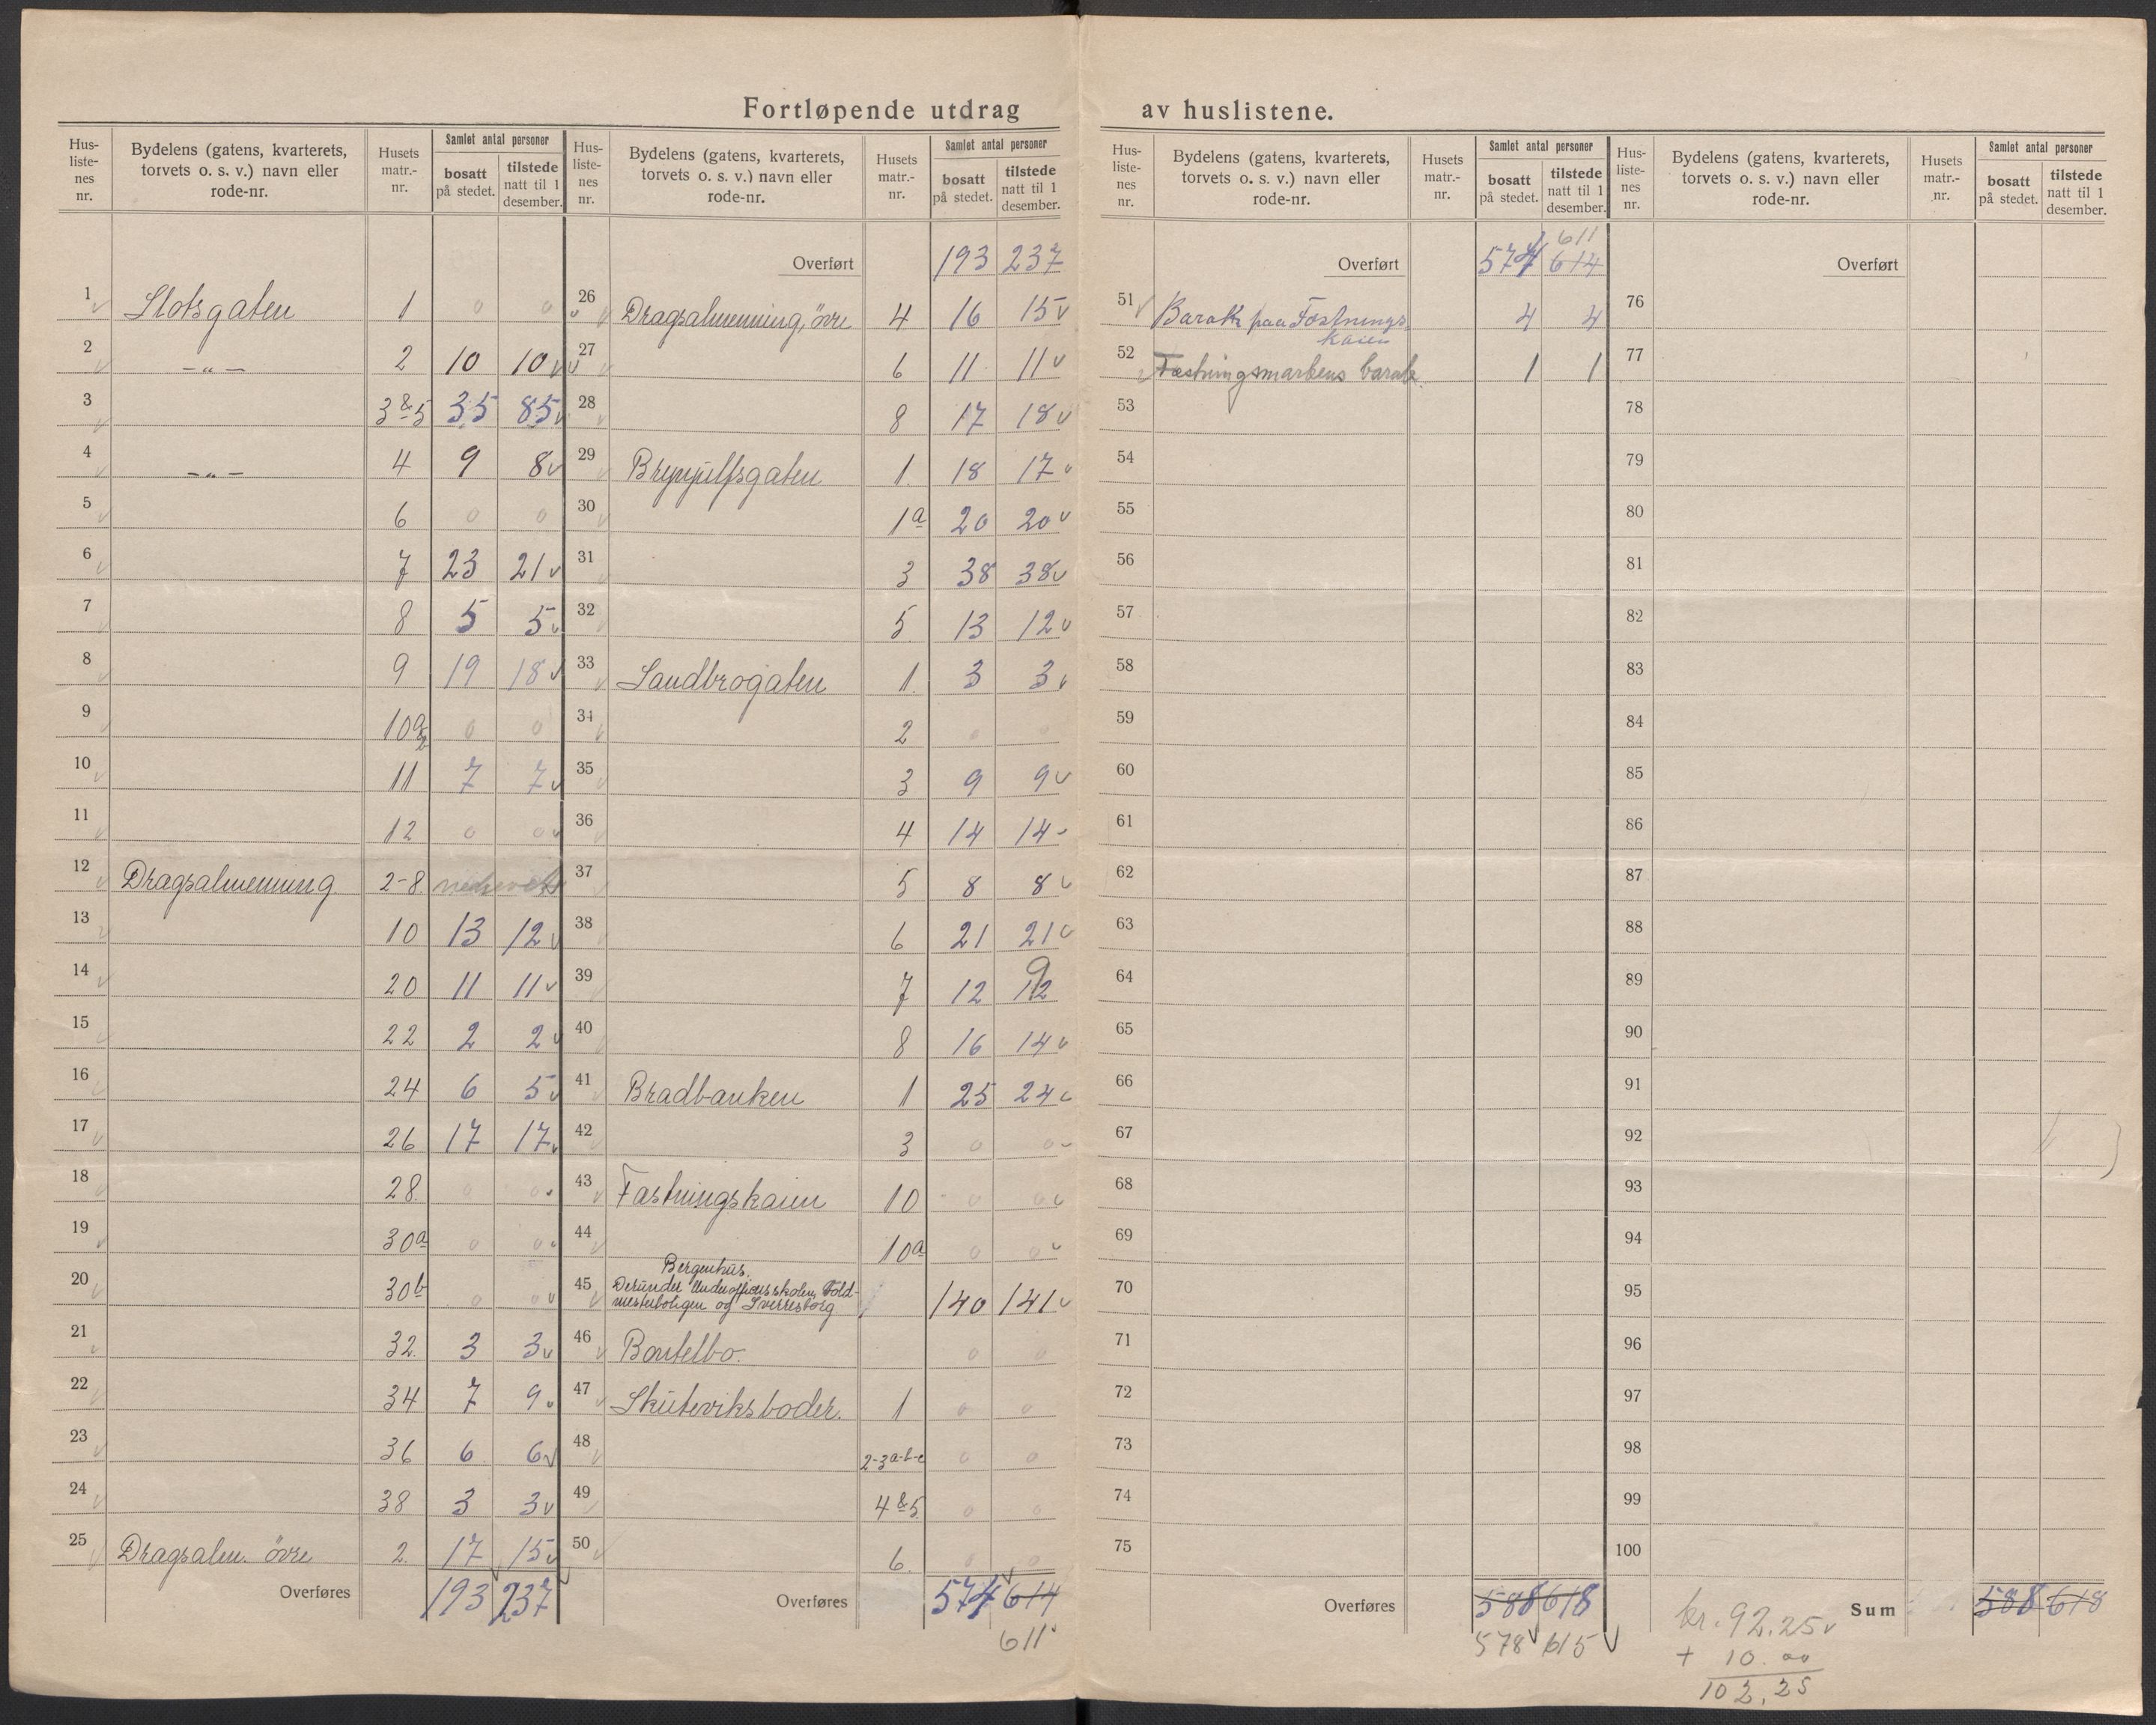 Fortløpende utdrag av huslistene.
Hus-listenes nr. | Bydelens (gatens, kvarterets, torvets o. s. v.) navn eller rode-nr. | Husets matr.-nr. | Samlet antal personer | bosatt på stedet. | tilstede natt til 1 desember.
1 Slotsgaten 1 0 0
2 -„- 2 10 10 v
3 3 & 5 35 85 v
4 -„- 4 9 8 v
5 6 0 0
6 7 23 21 v
7 8 5 5 v
8 9 19 18 v
9 10 a & b 0 0
10 11 7 7 v
11 12 0 0 v
12 Dragsalmenning 2-8 nedrevet
13 10 13 12 v
14 20 11 11 v
15 22 2 2 v
16 24 6 5 v
17 26 17 17 v
18 28. 0 0
19 30 a 0 0
20 30 b 0 0 v
21 32. 3 3 v
22 34 7 9 v
23 36 6 6 v
24 38 3 3 v
25 Dragsalm. övre 2. 17 15 v
Overføres 193 237
Hus-listenes nr. | Bydelens (gatens, kvarterets, torvets o. s. v.) navn eller rode-nr. | Husets matr.-nr. | Samlet antal personer | bosatt på stedet. | tilstede natt til 1 desember.
Overført 193 237
26 Dragsalmenning, övre 4 16 15 v
27 6 11 11 v
28 8 17 18 v
29 Brynjulfsgaten 1. 18 17 v
30 1 a 20 20 v
31 3 38 38 v
32 5. 13 12 v
33 Sandbrogaten 1. 3 3 v
34 2 0 0
35 3 9 9 v
36 4 14 14
37 5 8 8 v
38 6 21 21 v
39 7 12 12 9
40 8 16 14 v
41 Bradbanken 1 25 24 v
42 3 0 0
43 Fæstningskaien 10 0 0 v
44 10 a 0 0 v
45 Bergenhus.
Derunder Underofficersskolen, Told-
mesterboligen og Sverresborg 140 141 v
46 Bontelbo. 0 0
47 Skuteviksboder. 1 0 0
48 2-3 a-b-c 0 0
49 4 & 5 0 0
50 6. 0 0
Overføres 574 614
611
Hus-listenes nr. | Bydelens (gatens, kvarterets, torvets o. s. v.) navn eller rode-nr. | Husets matr.-nr. | Samlet antal personer | bosatt på stedet. | tilstede natt til 1 desember.
611
Overført 574 614
51 Barak paa Fæstnings
kaien 4 4
52 Fæstningsmarkens barak. 1 1
53
54
55
56
57
58
59
60
61
62
63
64
65
66
67
68
69
70
71
72
73
74
75
Overføres 588 618
578 v 615 v
Hus-listenes nr. | Bydelens (gatens, kvarterets, torvets o. s. v.) navn eller rode-nr. | Husets matr.-nr. | Samlet antal personer | bosatt på stedet. | tilstede natt til 1 desember.
Overført
76
77
78
79
80
81
82
83
84
85
86
87
88
89
90
91
92
93
94
95
96
97
98
99
100
Sum 588 618
kr. 92.25 v
+ 10.00
102,25